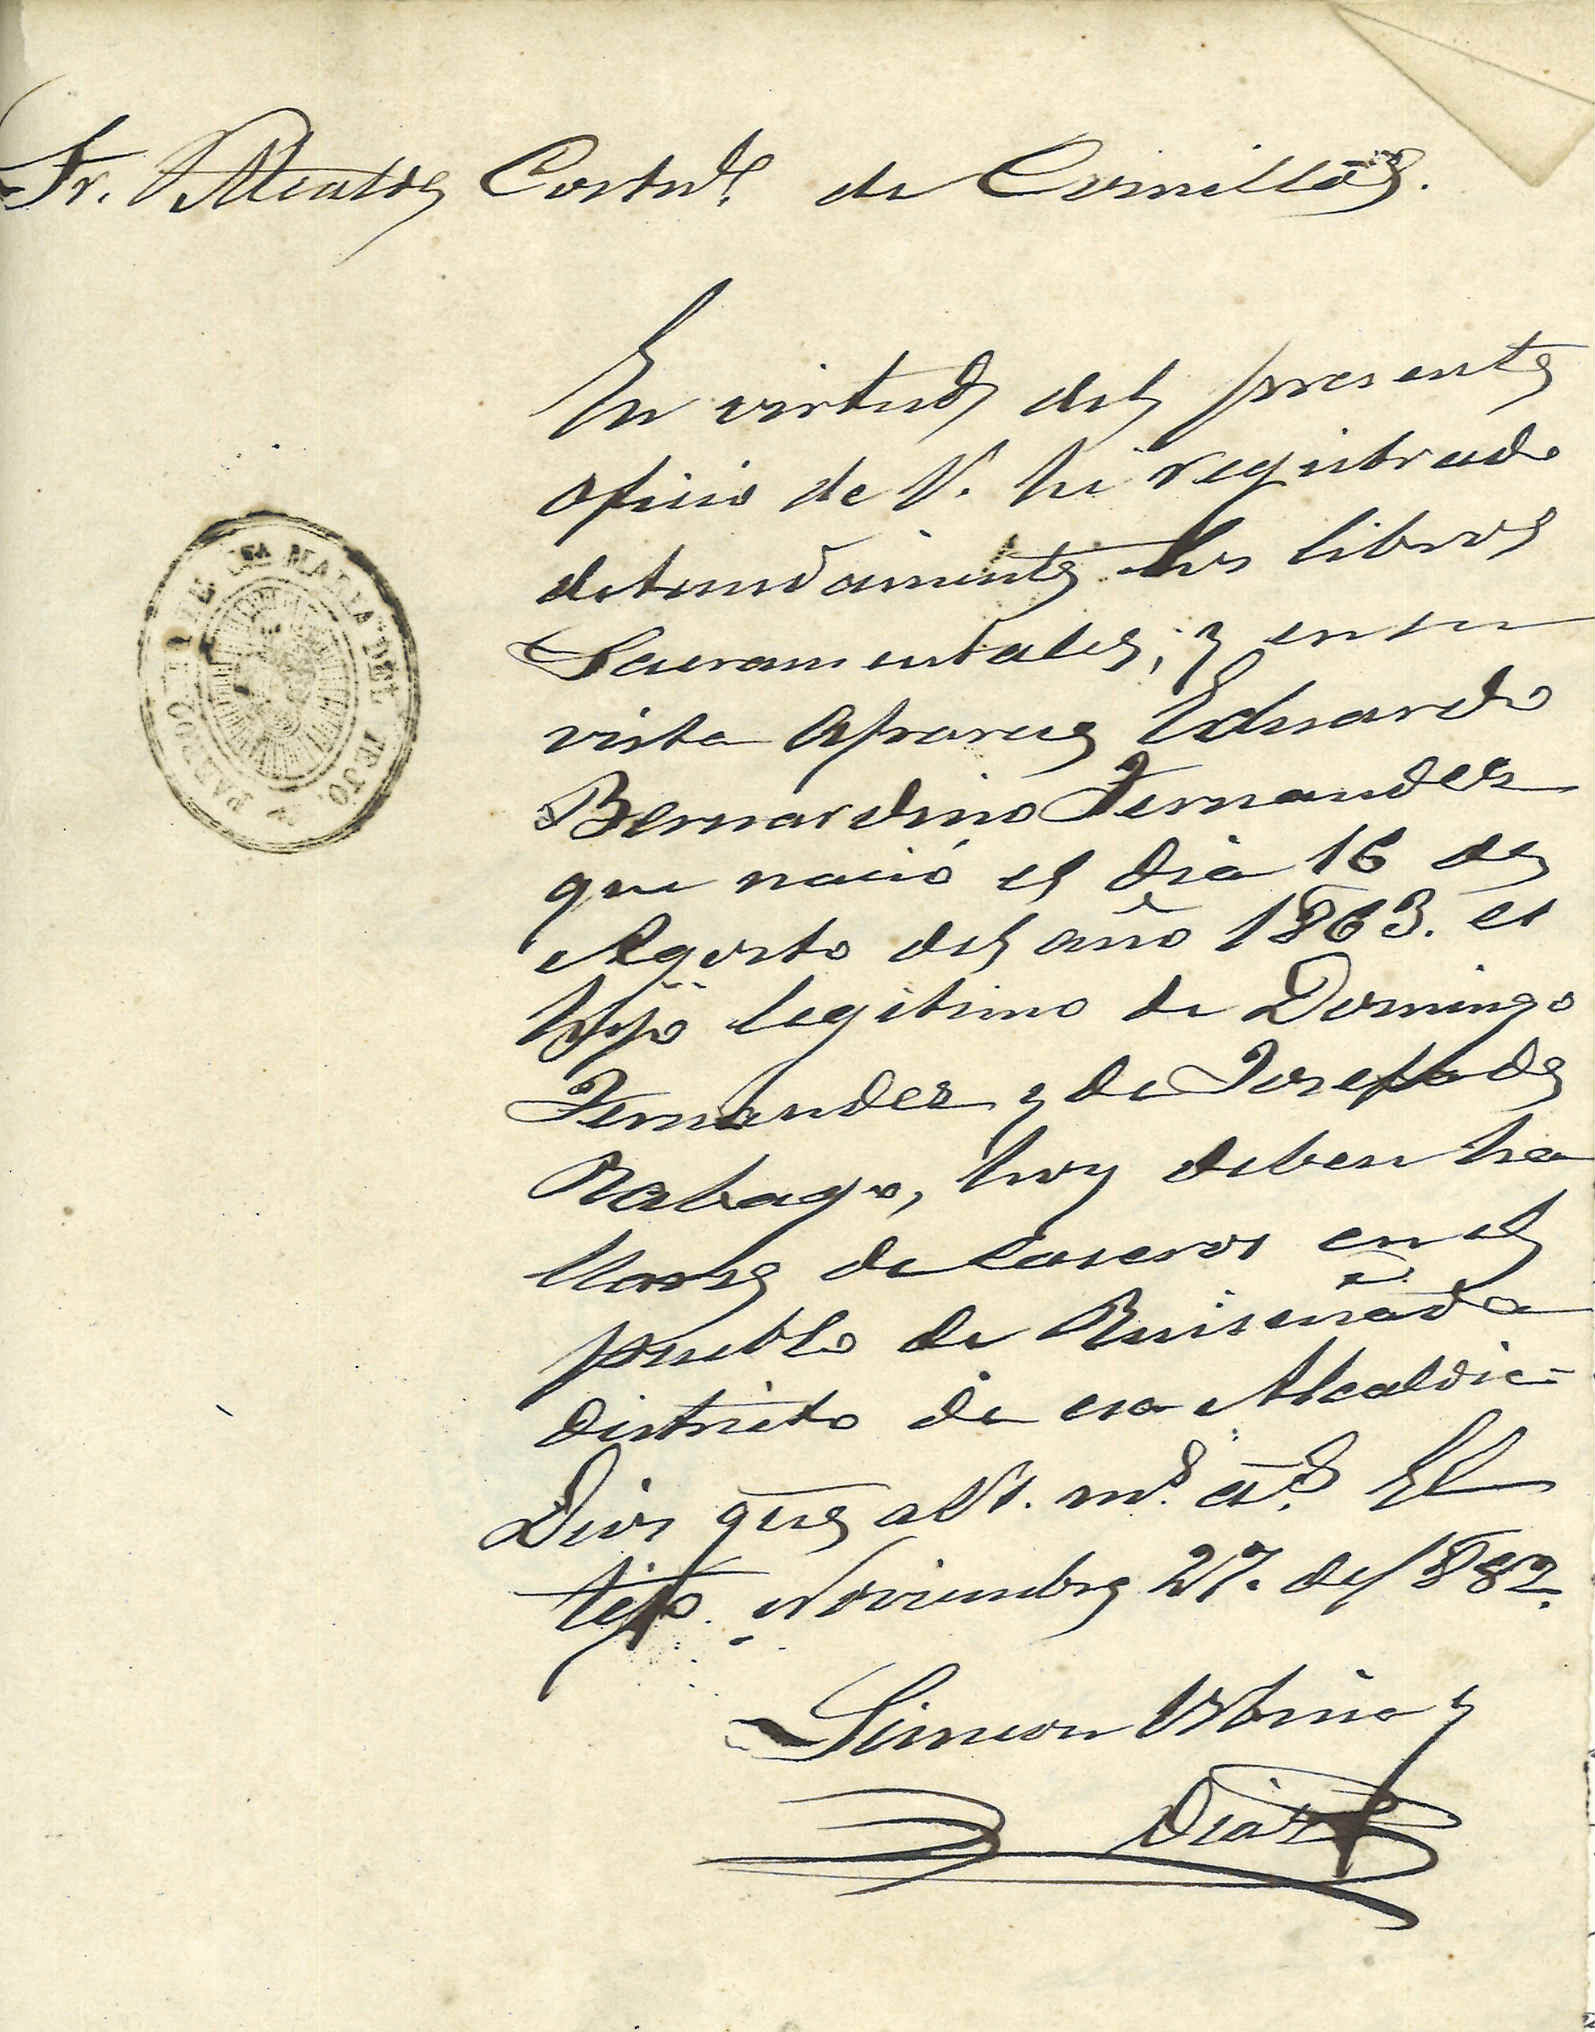 Sr. Alcalde Constal. de Comillas.
En virtud del presente
oficio de V. he registrado
detenidamente los libros
Sacramentales, y en su
vista aparece Eduardo
Bernardino Fernandez
que nació el dia 16 de
Agosto del año 1863. es
hijo legitimo de Domingo
Fernandez y de Josefa de
Rabago, hoy deben ha
llarse de caseros en el
pueblo de Ruiseñada
distrito de esa Alcaldia
Dios gue a V. ms. as. El
tejo Noviembre 27. de 1882.
Simeon Urbina y
Diaz
PARROQUIA DE Sta MARIA DEL TEJO.